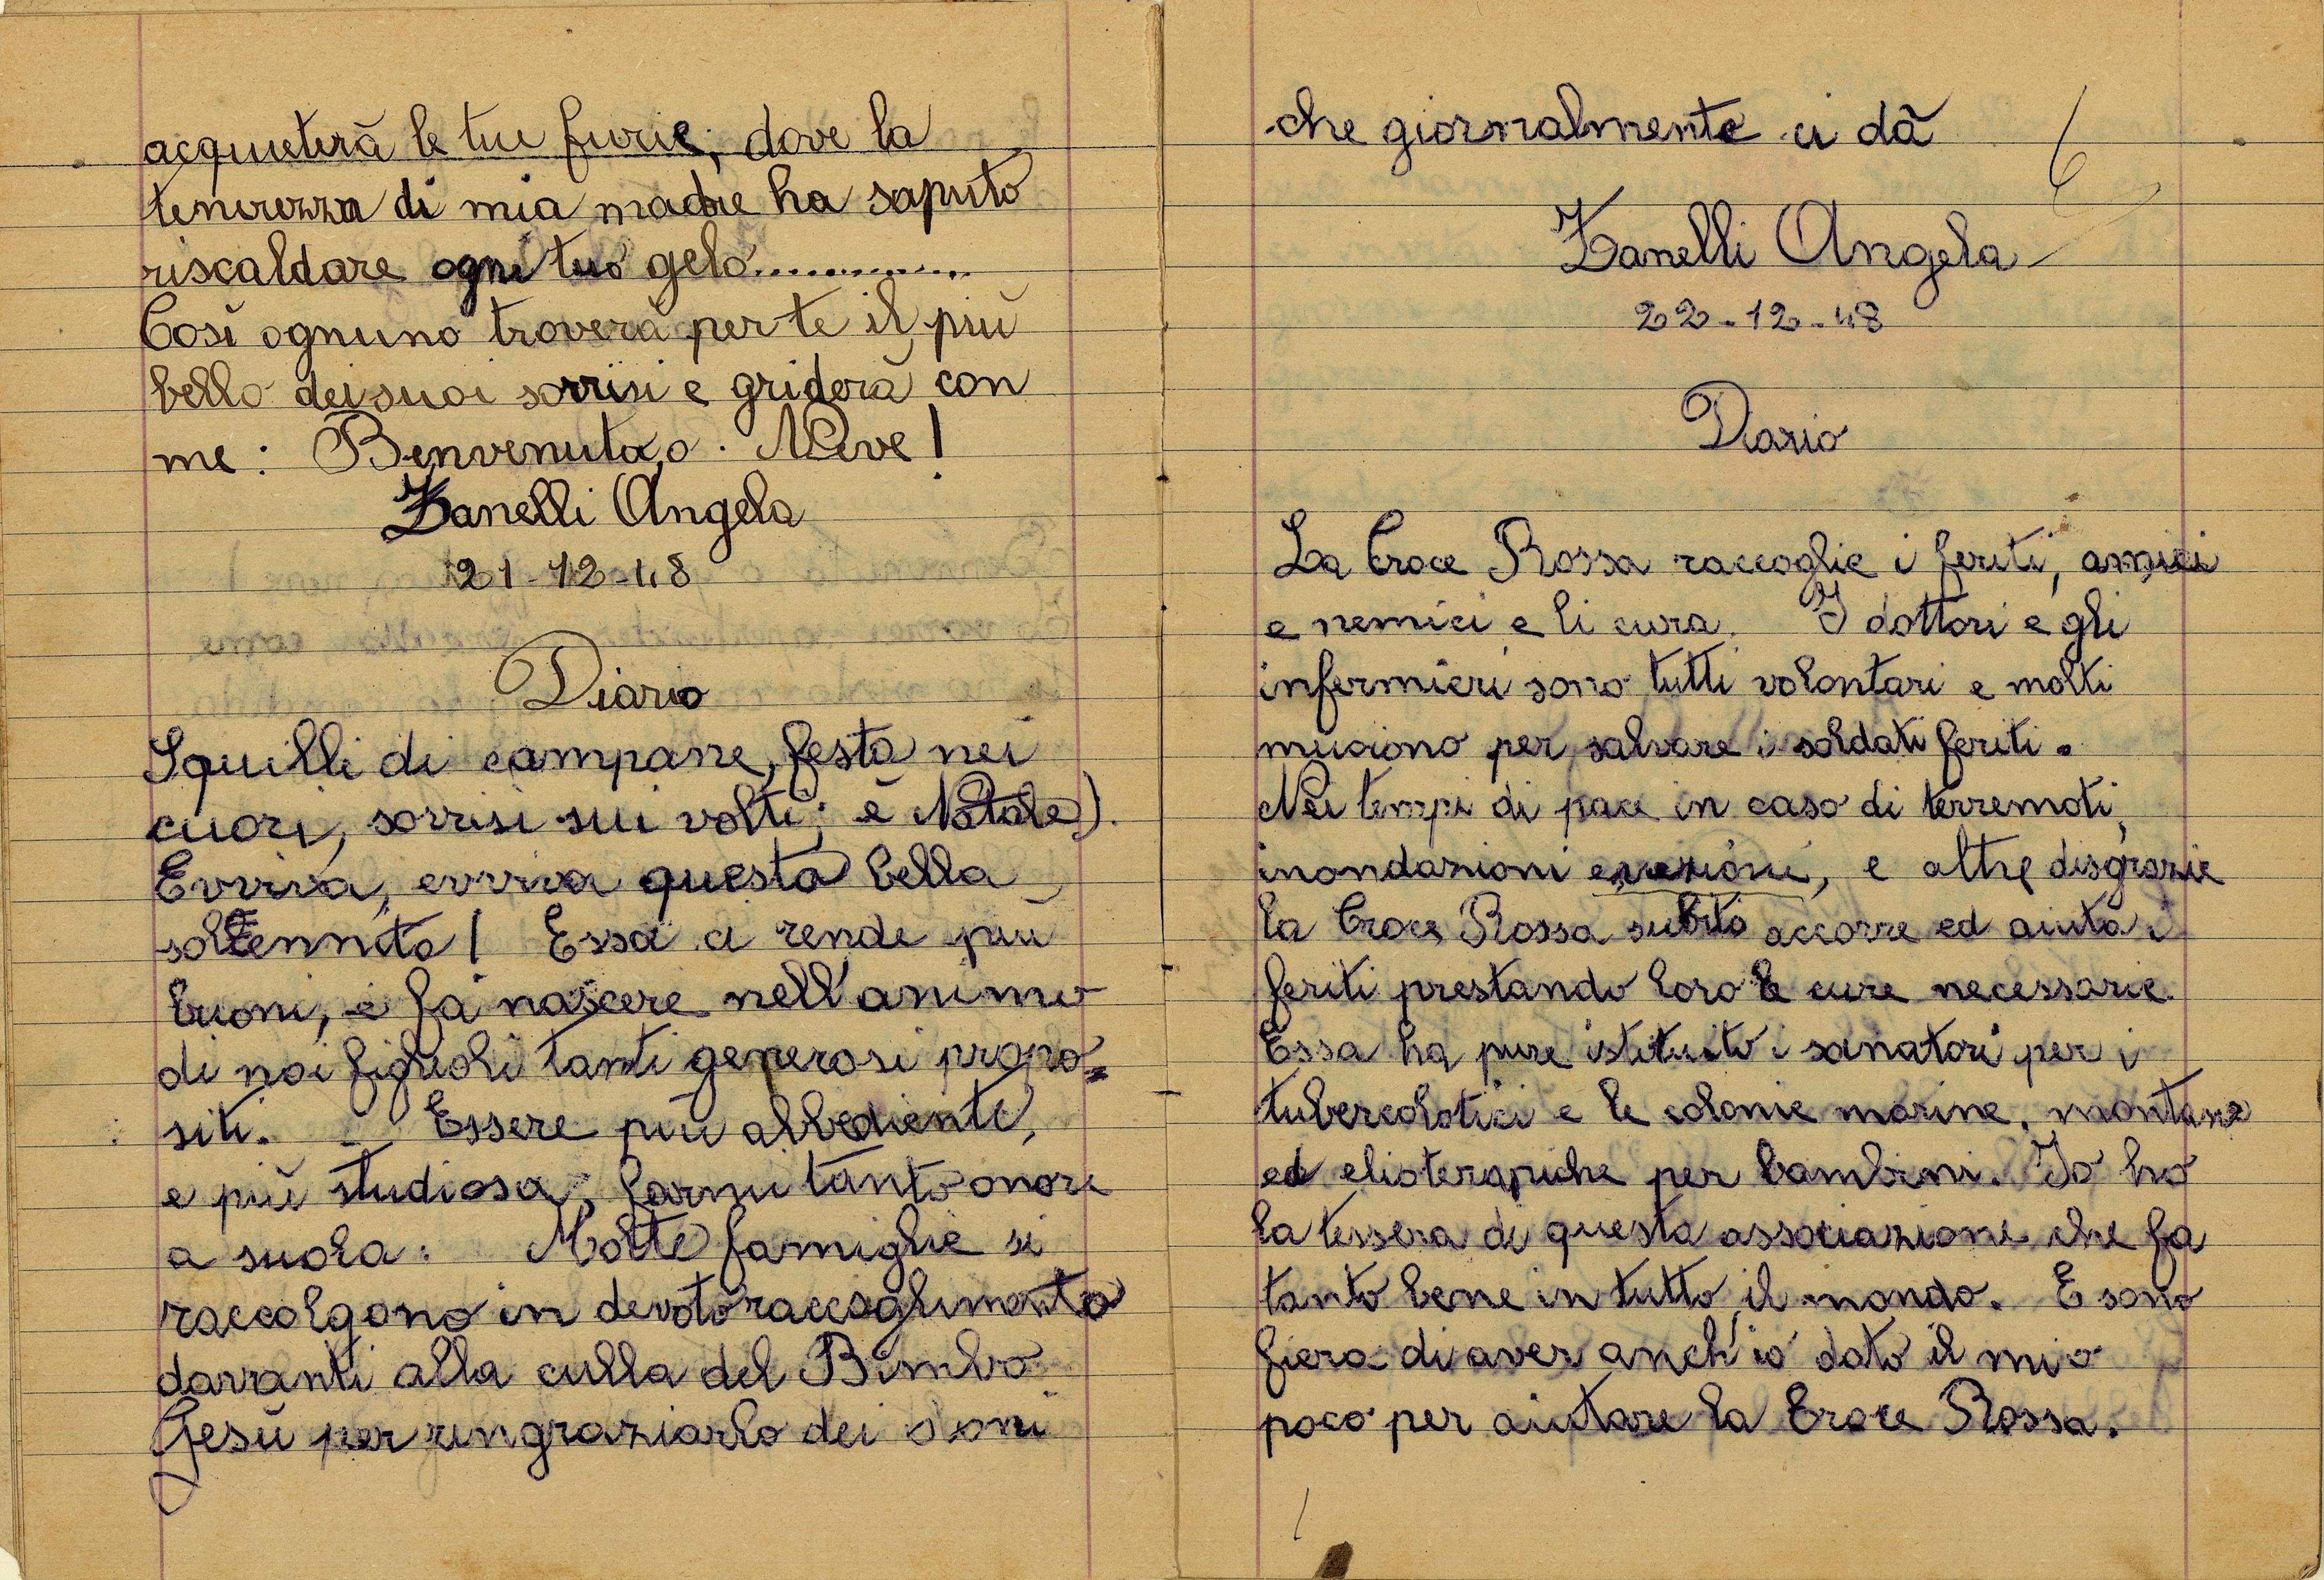 acquieterà le tue furie; dove la
tenerezza di mia madre ha saputo
riscaldare ogni tuo gelo.............
Così ognuno troverà per te il più
bello dei suoi sorrisi e griderà con
me: Benvenuta, o Neve!
Zanelli Angela
21-12-48
Diario
Squilli di campane, festa nei
cuori, sorrisi sui volti; è Natale).
Evviva, evviva questa bella
solennità! Essa ci rende più
buoni, e fa nascere nell'animo
di noi figlioli tanti generosi propo=
siti. Essere più obbediente,
e più studiosa, farmi tanto onore
a suola. Molte famiglie si
raccolgono in devoto raccoglimento
davanti alla culla del Bimbo
Gesù per ringraziarlo dei doni
che giornalmente ci dà
6
Zanelli Angela
22-12-48
Diario
La Croce Rossa raccoglie i feriti, amici
e nemici e li cura. I dottori e gli
infermieri sono tutti volontari e molti
muoiono per salvare i soldati feriti.
Nei tempi di pace in caso di terremoti,
inondazioni, e altre disgrazie
la Croce Rossa subito accorre ed aiuta i
feriti prestando loro le cure necessarie.
Essa ha pure istituito i sanatori per i
tubercolotici e le colonie marine, montane
ed elioterapiche per bambini. Io ho
la tessera di questa associazione che fa
tanto bene in tutto il mondo. E sono
fiera di aver anch'io dato il mio
poco per aiutare la Croce Rossa.